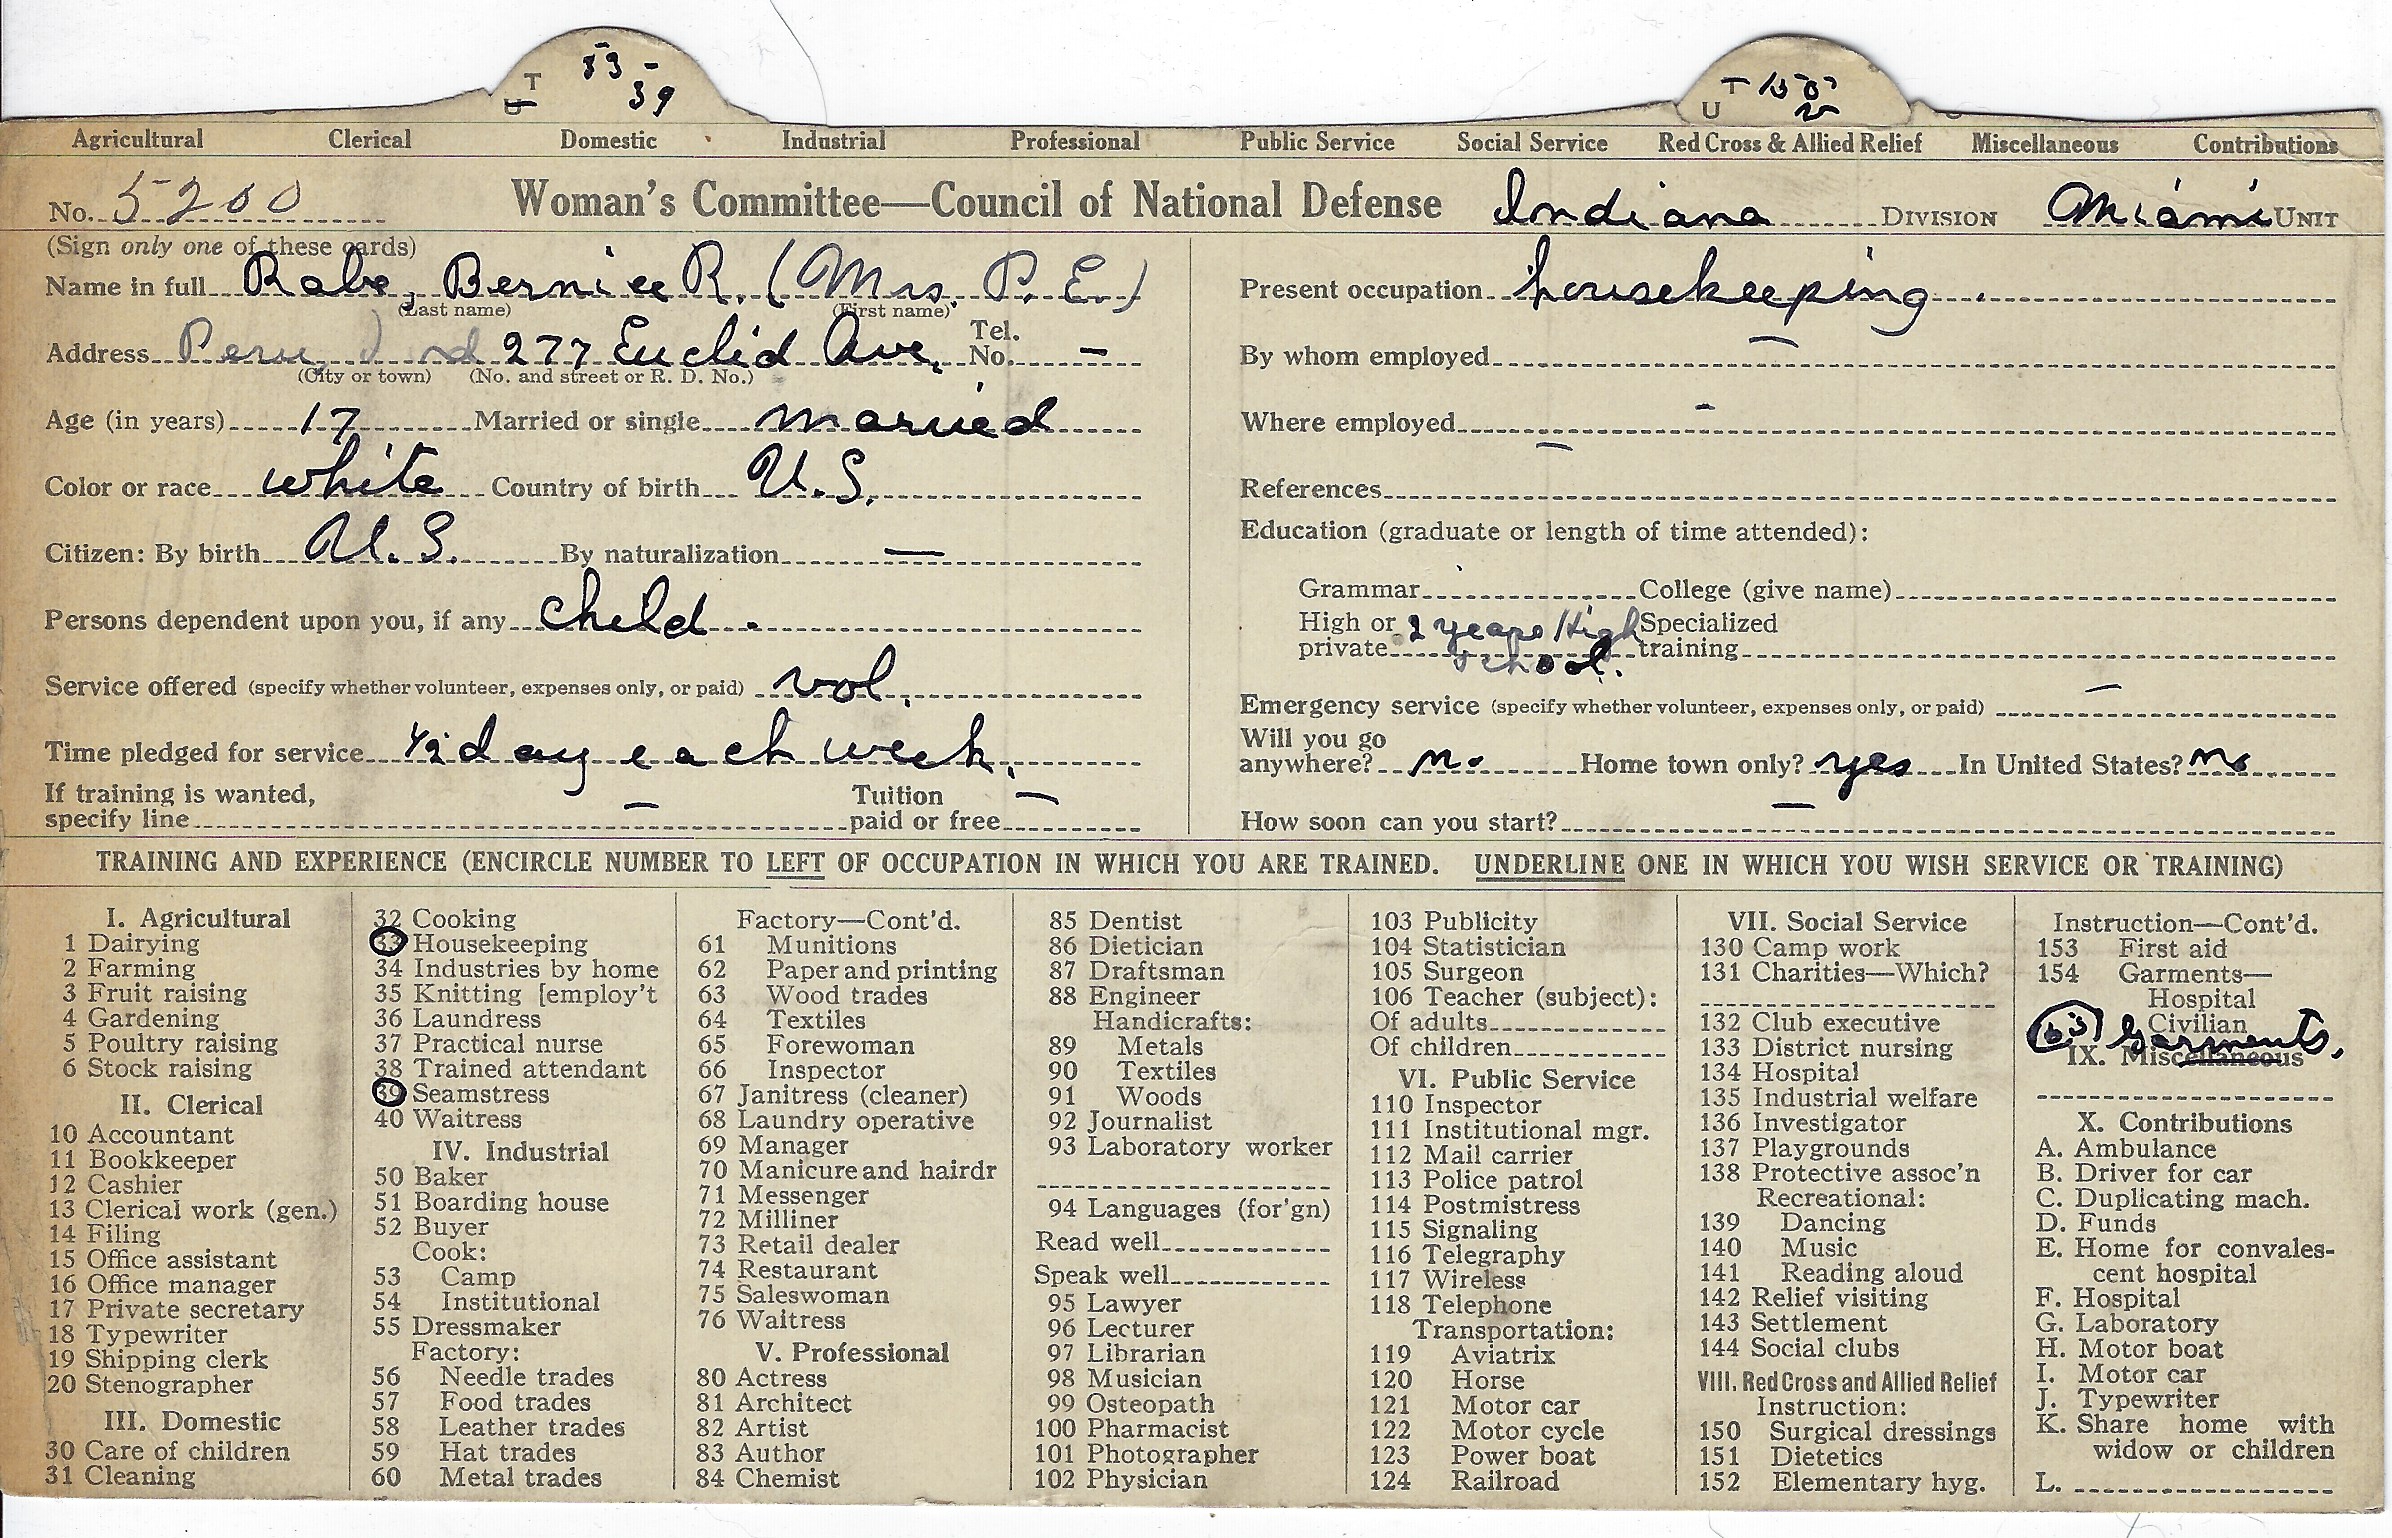 T 33-
U 39
T 155
U
Agricultural Clerical Domestic Industrial Professional Public Service Social Service Red Cross & Allied Relief Miscellaneous Contributions
No. 5200 Woman's Committee—Council of National Defense Indiana DIVISION Miami UNIT
(Sign only one of these cards)
Name in full Rabe, Bernice R. (Mrs. P. E.)
(Last name) (First name)
Address Peru, Ind 277 Euclid Ave. Tel. No. —
(City or town) (No. and street or R. D. No.)
Age (in years) 17 Married or single married
Color or race white Country of birth U.S.
Citizen: By birth U.S. By naturalization —
Persons dependent upon you, if any child.
Service offered (specify whether volunteer, expenses only, or paid) vol.
Time pledged for service 1/2 day each week.
If training is wanted,
specify line — Tuition paid or free —
Present occupation housekeeping.
By whom employed —
Where employed -
References —
Education (graduate or length of time attended):
Grammar College (give name)
High or private 2 years High School. Specialized training
Emergency service (specify whether volunteer, expenses only, or paid) —
Will you go anywhere? no Home town only? yes In United States? no
How soon can you start? —
TRAINING AND EXPERIENCE (ENCIRCLE NUMBER TO LEFT OF OCCUPATION IN WHICH YOU ARE TRAINED. UNDERLINE ONE IN WHICH YOU WISH SERVICE OR TRAINING)
I. Agricultural
1 Dairying
2 Farming
3 Fruit raising
4 Gardening
5 Poultry raising
6 Stock raising
II. Clerical
10 Accountant
11 Bookkeeper
12 Cashier
13 Clerical work (gen.)
14 Filing
15 Office assistant
16 Office manager
17 Private secretary
18 Typewriter
19 Shipping clerk
20 Stenographer
III. Domestic
30 Care of children
31 Cleaning
32 Cooking
33 Housekeeping
34 Industries by home
35 Knitting [employ't
36 Laundress
37 Practical nurse
38 Trained attendant
39 Seamstress
40 Waitress
IV. Industrial
50 Baker
51 Boarding house
52 Buyer
Cook:
53 Camp
54 Institutional
55 Dressmaker
Factory:
56 Needle trades
57 Food trades
58 Leather trades
59 Hat trades
60 Metal trades
Factory—Cont'd.
61 Munitions
62 Paper and printing
63 Wood trades
64 Textiles
65 Forewoman
66 Inspector
67 Janitress (cleaner)
68 Laundry operative
69 Manager
70 Manicure and hairdr
71 Messenger
72 Milliner
73 Retail dealer
74 Restaurant
75 Saleswoman
76 Waitress
V. Professional
80 Actress
81 Architect
82 Artist
83 Author
84 Chemist
85 Dentist
86 Dietician
87 Draftsman
88 Engineer
Handicrafts:
89 Metals
90 Textiles
91 Woods
92 Journalist
93 Laboratory worker
94 Languages (for'gn)
Read well
Speak well
95 Lawyer
96 Lecturer
97 Librarian
98 Musician
99 Osteopath
100 Pharmacist
101 Photographer
102 Physician
103 Publicity
104 Statistician
105 Surgeon
106 Teacher (subject):
Of adults
Of children
VI. Public Service
110 Inspector
111 Institutional mgr.
112 Mail carrier
113 Police patrol
114 Postmistress
115 Signaling
116 Telegraphy
117 Wireless
118 Telephone
Transportation:
119 Aviatrix
120 Horse
121 Motor car
122 Motor cycle
123 Power boat
124 Railroad
VII. Social Service
130 Camp work
131 Charities—Which?
132 Club executive
133 District nursing
134 Hospital
135 Industrial welfare
136 Investigator
137 Playgrounds
138 Protective assoc'n
Recreational:
139 Dancing
140 Music
141 Reading aloud
142 Relief visiting
143 Settlement
144 Social clubs
VIII. Red Cross and Allied Relief
Instruction:
150 Surgical dressings
151 Dietetics
152 Elementary hyg.
Instruction—Cont'd.
153 First aid
154 Garments—
Hospital
Civilian
Garments.
IX. Miscellaneous
X. Contributions
A. Ambulance
B. Driver for car
C. Duplicating mach.
D. Funds
E. Home for convales-
cent hospital
F. Hospital
G. Laboratory
H. Motor boat
I. Motor car
J. Typewriter
K. Share home with
widow or children
L.